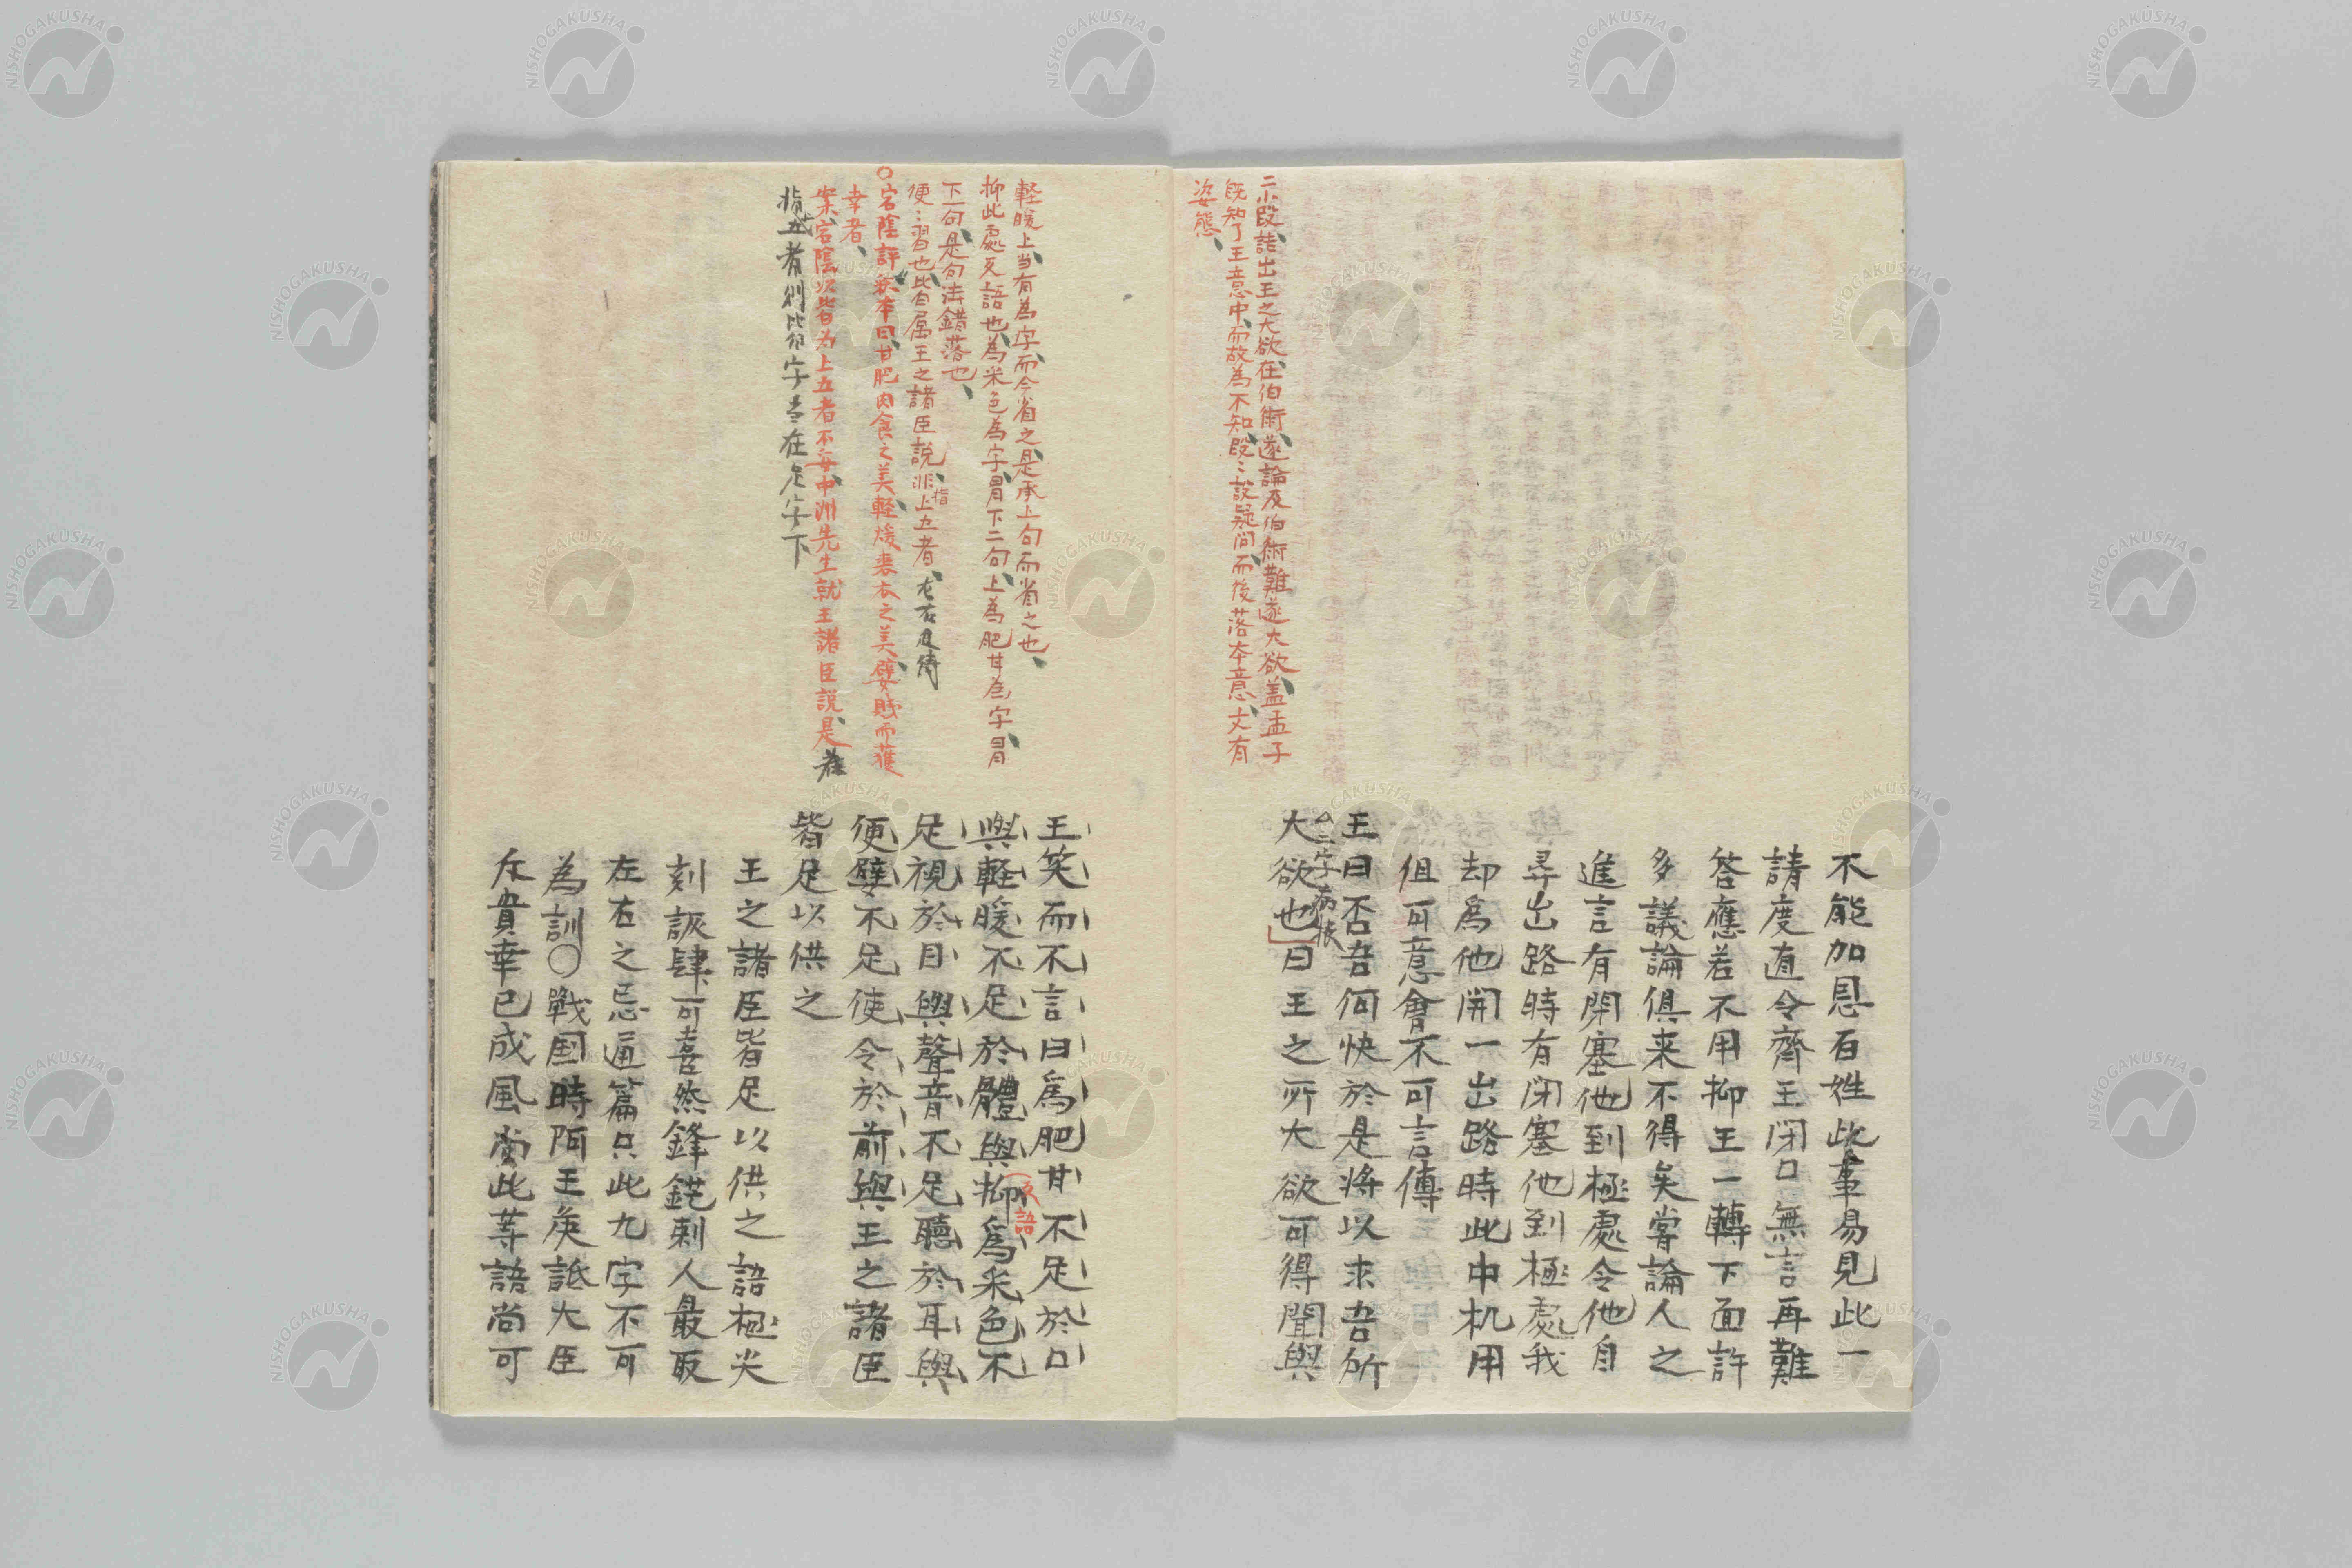 二小段詰出王之大欲在伯術遂論及伯術難遂大欲蓋孟子
既知了王意中而故為不知既〻設疑問而後落本意文有
姿態
不能加恩百姓此事易見此一
請度直令齊王閉口無言再難
答應若不用抑王一轉下面許
多議論俱来不得矣嘗論人之
進言有閉塞他到極處令他自
尋出路時有閉塞他到極處我
却為他開一出路時此中机用
但可意會不可言傳
王曰否吾何快於是將以求吾所
二字病根
大欲也曰王之所大欲可得聞與
軽暖上当有為字而今省之是承上句而省之也
抑此處反語也為采色為字冒下二句上為肥甘為字冒
下一句是句法錯落也
便〻習也皆属王之諸臣説非指上五者左右及待
○宕陰評秩本曰甘肥肉食之美軽煖裘衣之美嬖賎而獲
幸者
案宕陰以皆為上五者不妥中洲先生就王諸臣説是若
指五者則皆字当在足字下
王笑而不言曰為肥甘不足於口
與軽暖不足於體與抑為采色不
反語
足視於目與聲音不足聽於耳與
便嬖不足使令於前與王之諸臣
皆足以供之
王之諸臣皆足以供之語極尖
刻詼肆可喜然鋒鋩刺人最取
左右之忌通篇只此九字不可
為訓○戰国時阿王矦詆大臣
斥貴幸已成風尚此等語尚可